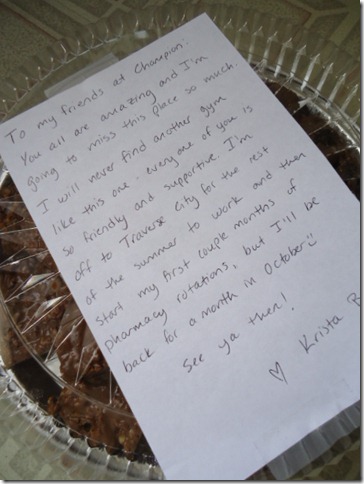 To my friends at Champion:
You all are amazing and I'm
going to miss this place so much.
I will never find another gym
like this one - every one of you is
so friendly and supportive. I'm
off to Traverse City for the rest
of the summer to work and then
start my first couple months of
pharmacy rotations, but I'll be
back for a month in October :)
See ya then!
♡ Krista